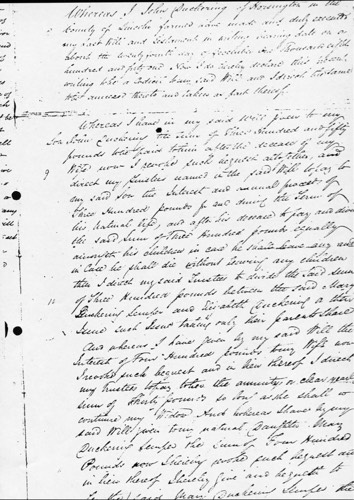 Whereas I John Duckering of Dorrington in the
County of Lincoln farmer have made and duly executed
my last Will and Testament in writing bearing date on or
about the day of One thousand eight
hundred and and I do hereby declare this
writing to be a Codicil to my said Will and I direct the same
to be annexed thereto and taken as part thereof
Whereas I have in my said Will given to my
Son John Duckering the sum of Three Hundred and fifty
pounds to be paid to him after the decease of my
Wife now I revoke such bequest altogether, and
direct my Trustees named in the said Will to pay to
my said Son the Interest and annual proceeds of
Three Hundred pounds for and during the term of
his natural life, and after his decease to pay and divide
the said sum of Three Hundred pounds equally
amongst his children in case he shall leave any and
in Case he shall die without leaving any children
then I direct my said Trustees to divide the said sum
of Three Hundred pounds between the said Mary
Duckering Semper and Elizabeth Duckering
Issue such Issue taking only their parents share
And whereas I have given by my said Will the
Interest of Four Hundred pounds to my Wife now
I revoke such bequest and in lieu thereof I direct
my trustees to pay to her the annuity or clear
sum of Thirty pounds so long as she shall
continue my Widow And whereas I have by my
said Will given to my natural Daughter Mary
Duckering Semper the Sum of Four Hundred
Pounds now I revoke such bequest and
in lieu thereof I hereby give and bequeath to
the said Mary Duckering Semper the